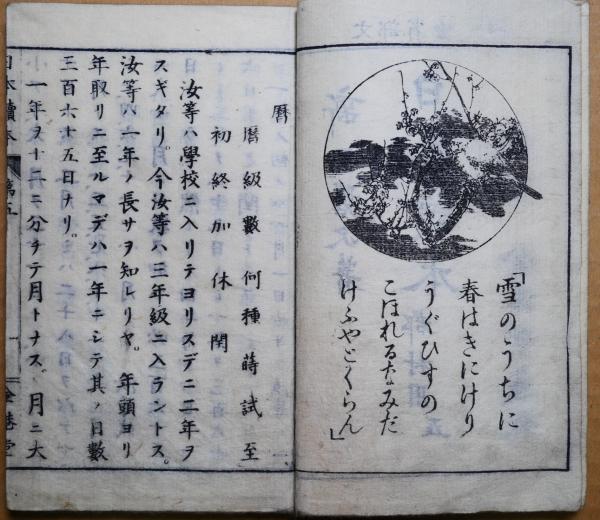 「雪のうちに
春はきにけり
うぐひすの
こほれるなみだ
けふやとくらん」
暦
暦級數何種蒔試至
初終加休閏
汝等ハ學校ニ入リテヨリスデニ二年ヲ
スギタリ。今汝等ハ三年級ニ入ラントス。
汝等ハ一年ノ長サヲ知レリヤ。年頭ヨリ
年取リニ至ルマデハ一年ニシテ其ノ日數
三百六十五日ナリ。
一年ヲ十二ニ分チテ月トナス。月ニ大
日本讀本 第五
金港堂